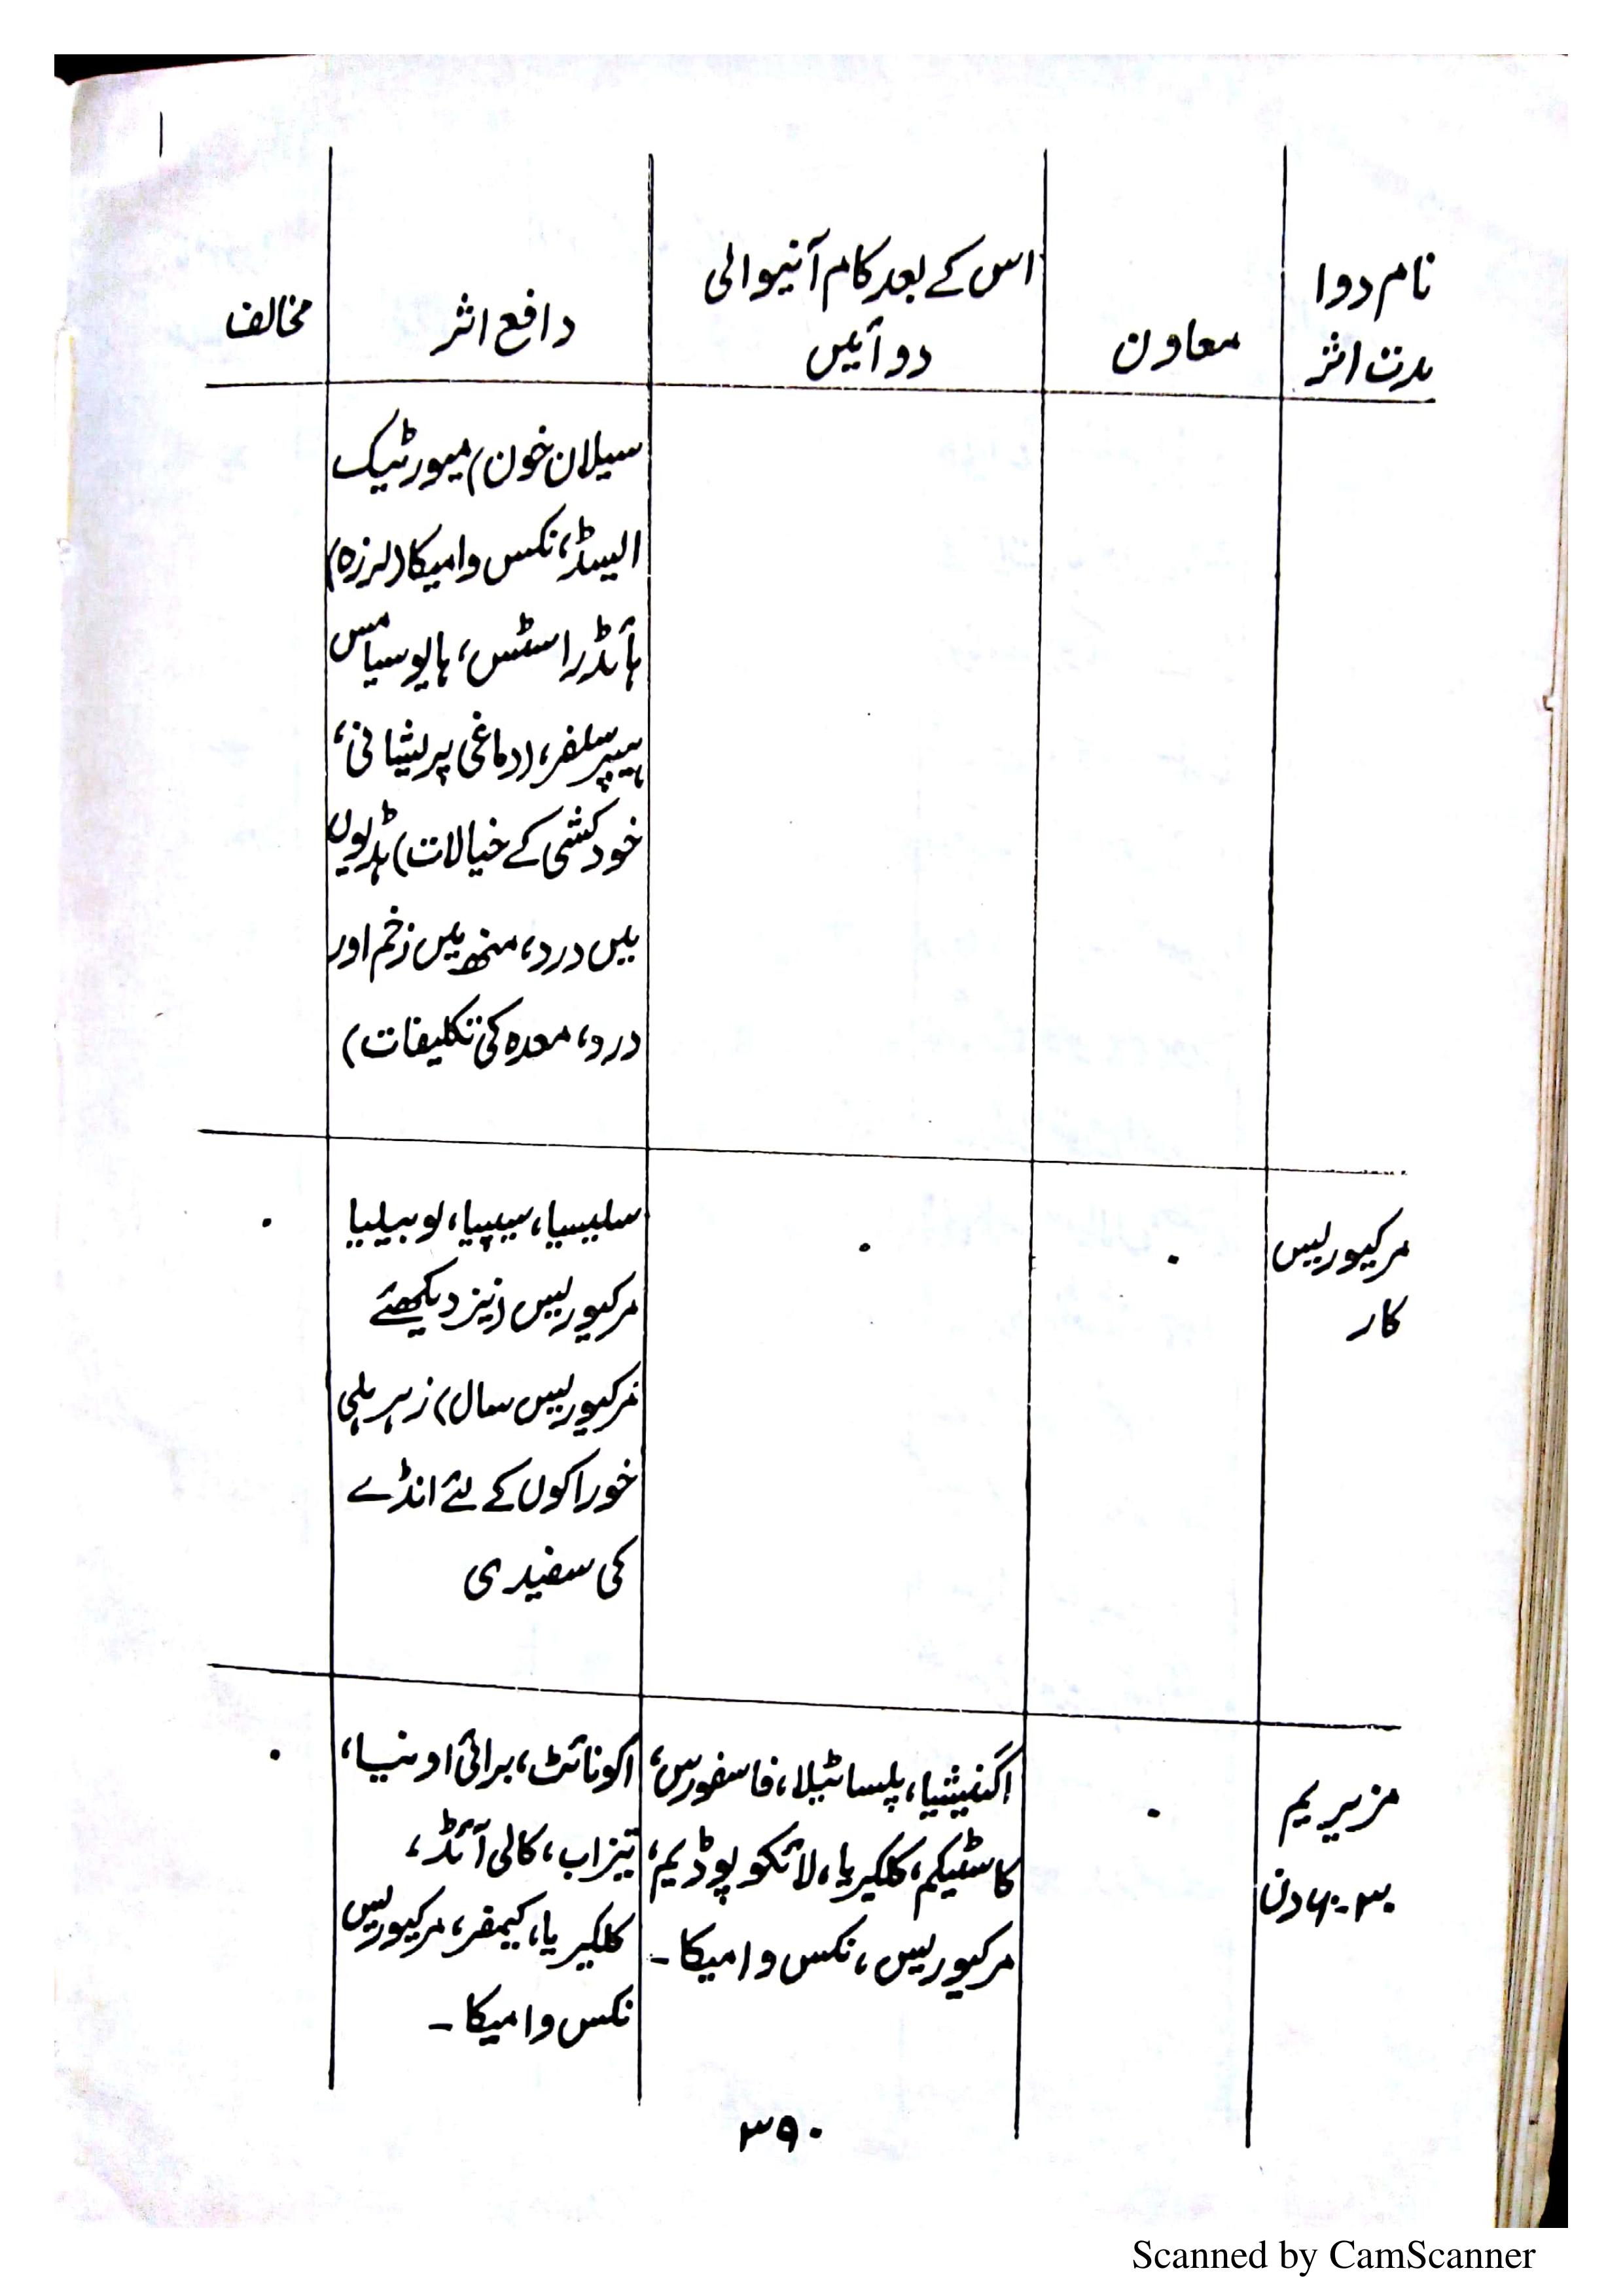 نام دوا
مدت اثر
معاون
اس کے بعد کام آنیوالی
دوائیں
دافع اثر
مخالف
سیلان خون) میورٹیک
ایسڈ، نکس وامیکا (لرزہ)
ہائڈراسٹس، ہایوسیامس
ہیپر سلفر، (دماغی پریشانی،
خودکشی کے خیالات) ہڈیوں
میں درد، منھ میں زخم اور
درد، معدہ کی تکلیفات)
مرکیوریس
کار
۰
۰
سلیسیا، سیپیا، لوبیلیا
مرکیوریس (نیز دیکھئے
مرکیوریس سال) زہریلی
خوراکوں کے لئے انڈے
کی سفیدی
۰
مزیریم
۳۰-۶۰ دن
۰
اگنیشیا، پلساٹیلا، فاسفورس،
کاسٹیکم، کلکیریا، لائکوپوڈیم،
مرکیوریس، نکس وامیکا۔
اکونائٹ، برائی اونیا،
تیزاب، کالی آئڈ،
کلکیریا، کیمفر، مرکیوریس
نکس وامیکا۔
۰
۳۹۰
Scanned by CamScanner